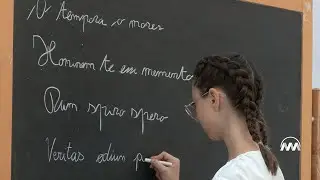 O tempora o mores
Hominem te esse memento
Dum spiro spero
Veritas odium p